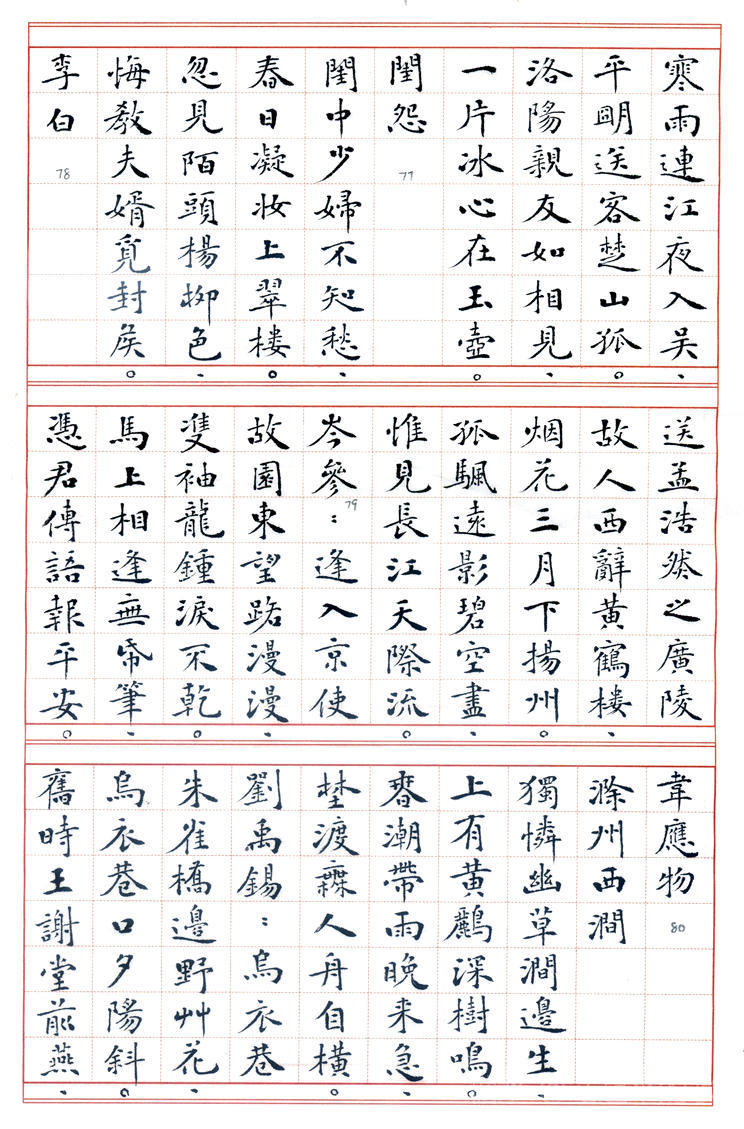 寒雨連江夜入吳、
平朙送客楚山孤。
洛陽親友如相見、
一片冰心在玉壺。
閨怨 77
閨中少婦不知愁、
春日凝妝上翠樓。
忽見陌頭楊柳色、
悔教夫婿覓封侯。
李白 78
送孟浩然之廣陵
故人西辭黃鶴樓、
烟花三月下揚州。
孤颿遠影碧空盡、
惟見長江天際流。
岑參：79 逢入京使
故園東望路漫漫、
雙袖龍鍾淚不乾。
馬上相逢無帋筆、
憑君傳語報平安。
韋應物 80
滁州西澗
獨憐幽草澗邊生、
上有黃鸝深樹鳴。
春潮帶雨晚来急、
埜渡無人舟自橫。
劉禹錫：烏衣巷
朱雀橋邊野艸花、
烏衣巷口夕陽斜。
舊時王謝堂前燕、